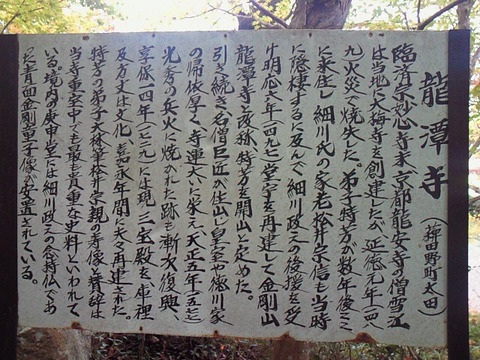 龍潭寺(稗田野町太田)
臨済宗妙心寺末 京都龍安寺の僧雪江
は当地に大梅寺を創建したが 延徳元年(一四八
九)火災で焼失した。弟子特芳が数年後ここ
に来住し 細川氏の家老松井宗信も当時
に隠棲するに及んで 細川政元の後援を受
け 明応七年(一四九七)堂宇を再建して 金剛山
龍潭寺と改称、特芳を開山と定めた。
引き続き名僧巨匠が住山し 皇室や徳川家
の帰依厚く 寺運大いに栄え 天正五年(一五七七)
光秀の兵火に焼かれた跡も 漸次復興、
享保一四年(一七二九)には現 三宝殿を 庫裡
及方丈は文化、嘉永年間に夫々再建された。
特芳の弟子大休筆松井宗親の寿像と賛辞は
当寺重宝中でも最も貴重な史料といわれて
いる。境内の庚申堂には 細川政元の念持仏であ
った青面金剛童子像が安置されている。